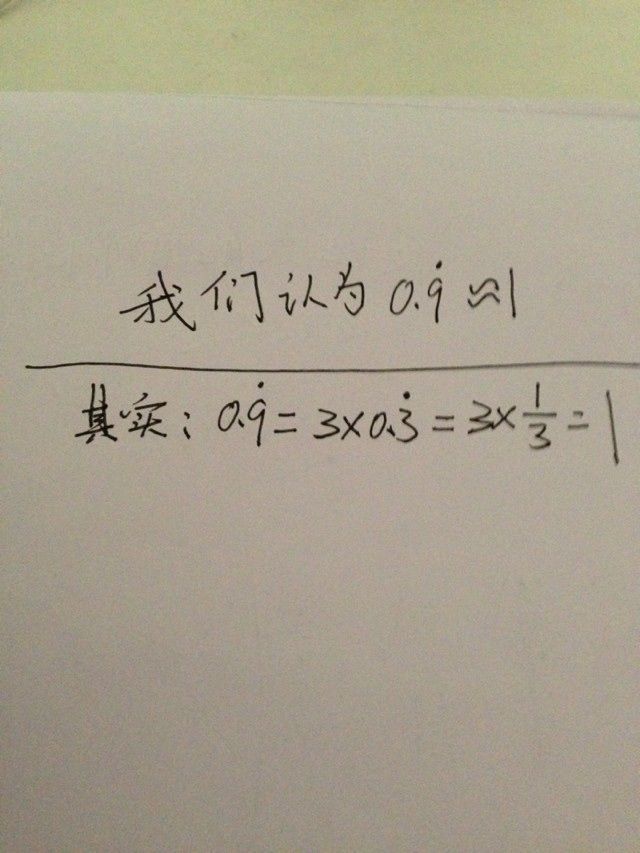 我们认为 0.9̇ ≈ 1
其实: 0.9̇ = 3×0.3̇ = 3×1/3 = 1